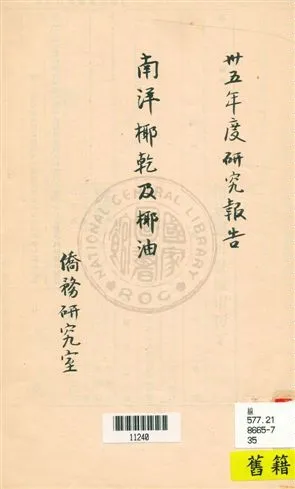 卅五年度研究報告
南洋椰乾及椰油
僑務研究室
NATIONAL CENTRAL LIBRARY
ROC
國家圖書館
11240
577.21
8665-7
35
舊籍